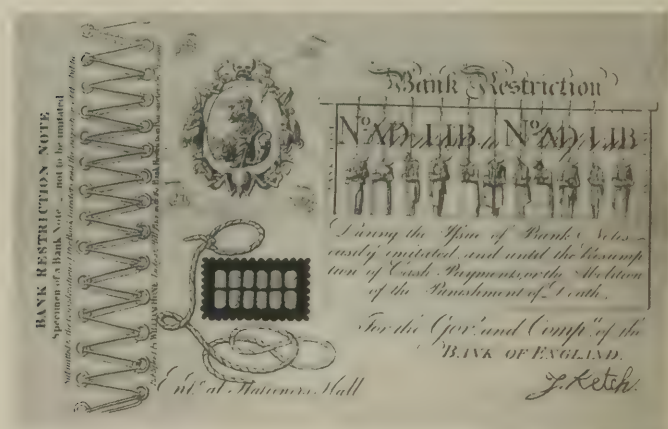 BANK RESTRICTION NOTE
Specimen of a Bank Note - not to be imitated
Submitted to the consideration of
by WILLIAM HONE
Bank Restriction
No. AD. LIB. No. AD. LIB.
During the Issue of Bank Notes
easily imitated, and until the Resump
tion of Cash Payments, or the Abolition
of the Punishment of Death,
For the Govr. and Compa. of the
BANK OF ENGLAND.
J. Ketch.
Entd. at Stationers Hall